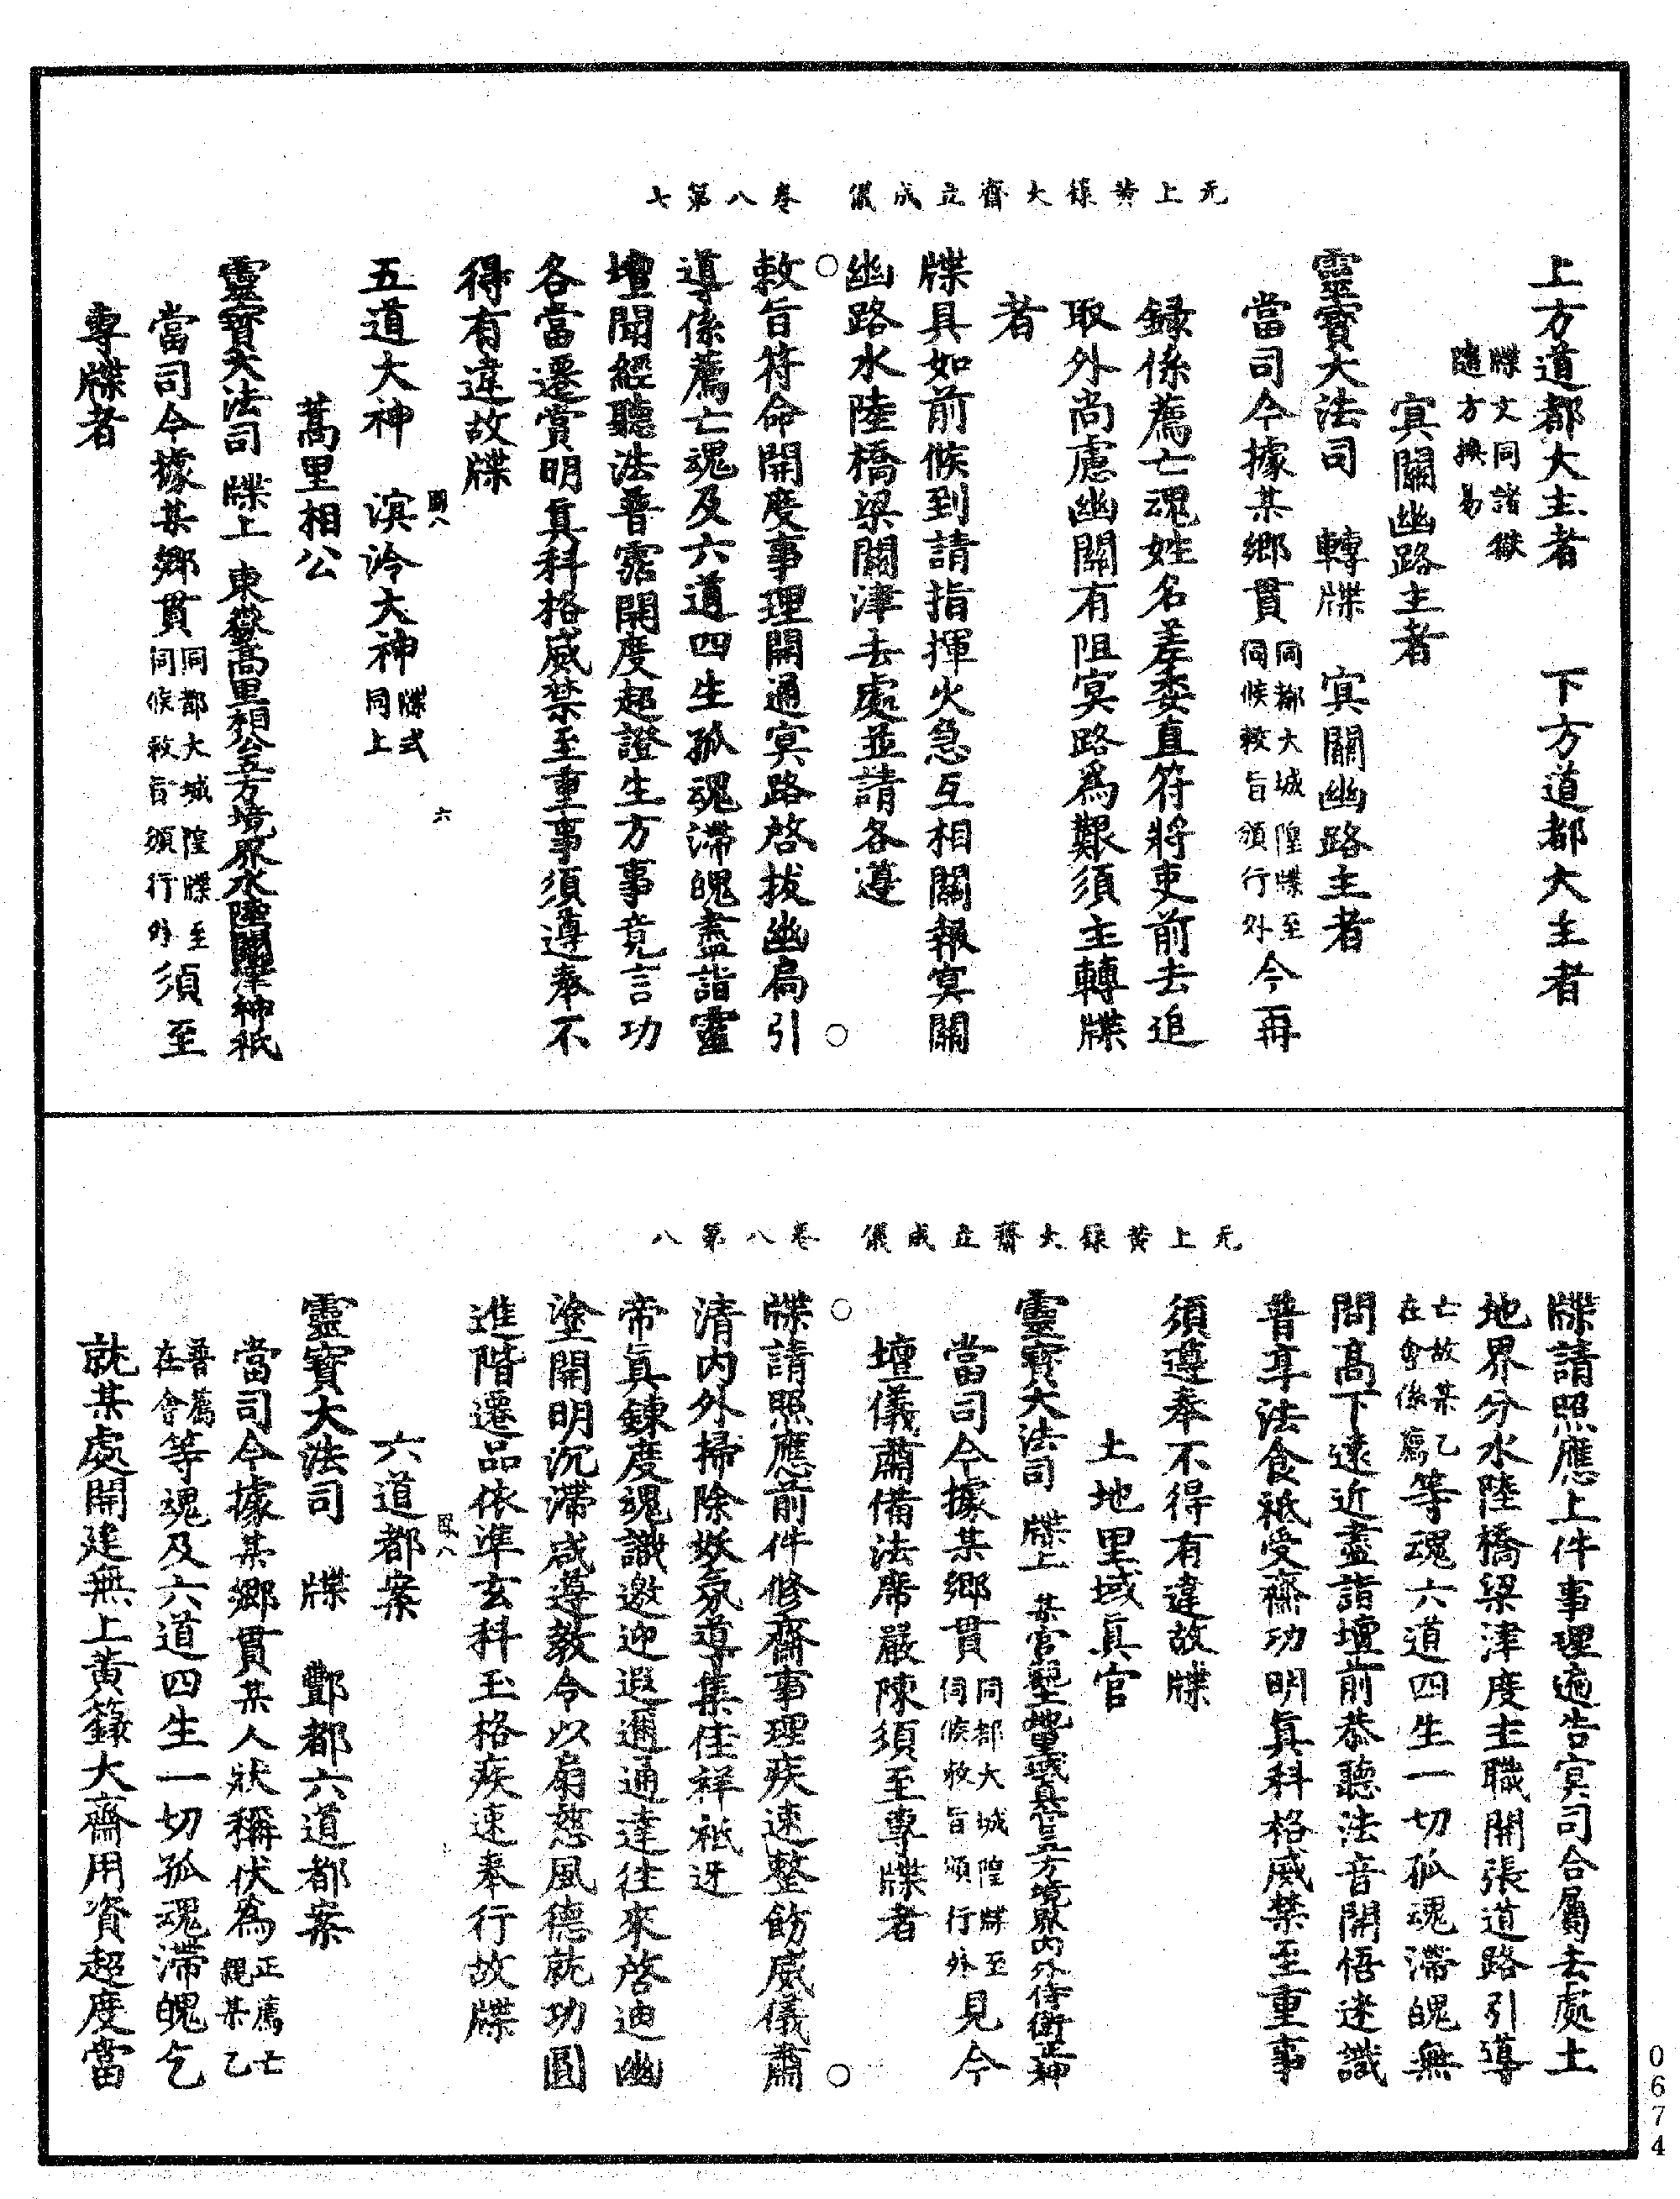 无上黃籙大齋立成儀　卷八第七
上方道都大主者　下方道都大主者
牒文同諸獄
隨方換易
冥關幽路主者
靈寶大法司　轉牒　冥關幽路主者
當司今據某鄉貫同都大城隍牒至伺候敕旨頒行外今再
錄係薦亡魂姓名差委直符將吏前去追
取外尚慮幽關有阻冥路爲艱須主轉牒
者
牒具如前候到請指揮火急互相關報冥關
幽路水陸橋梁關津去處並請各遵
敕旨符命開度事理開通冥路啓拔幽扃引
導係薦亡魂及六道四生孤魂滯魄盡詣靈
壇聞經聽法普霑開度超證生方事竟言功
各當遷賞明真科格威禁至重事須遵奉不
得有違故牒
國八　六
五道大神　溟泠大神牒式同上
蒿里相公
靈寶大法司　牒上　東嶽蒿里相公五方境界水陸關津神祇
當司今據某鄉貫同都大城隍牒至伺候敕旨頒行外須至
專牒者
无上黃籙大齋立成儀　卷八第八
牒請照應上件事理遍告冥司合屬去處土
地界分水陸橋梁津度主職開張道路引導
亡故某乙在會係薦等魂六道四生一切孤魂滯魄無
問高下遠近盡詣壇前恭聽法音開悟迷識
普享法食祇受齋功明真科格威禁至重事
須遵奉不得有違故牒
土地里域真官
靈寶大法司　牒上　某宮觀土地里域真官五方境界內外侍衛正神
當司今據某鄉貫同都大城隍牒至伺候敕旨頒行外見今
壇儀肅備法席嚴陳須至專牒者
牒請照應前件修齋事理疾速整飭威儀肅
清內外掃除妖氛導集佳祥祇迓
帝真鍊度魂識邀迎遐邇通達往來啓迪幽
塗開明沉滯咸遵敎令以扇慈風德就功圓
進階遷品依準玄科玉格疾速奉行故牒
國八
六道都案
靈寶大法司　牒　酆都六道都案
當司今據某鄉貫某人狀稱伏爲正薦亡親某乙
普薦在會等魂及六道四生一切孤魂滯魄乞
就某處開建無上黃籙大齋用資超度當
0674